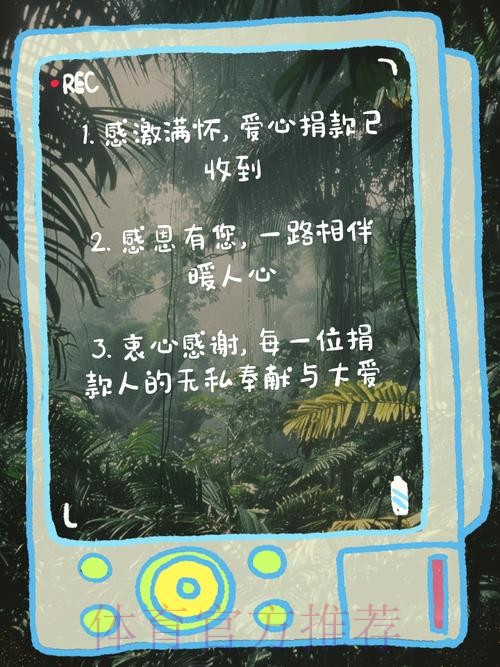 REC
1. 感激满怀, 爱心捐款已
收到
2. 感恩有您, 一路相伴
暖人心
3. 衷心感谢, 每一位捐
款人的无私奉献与大爱
体育官方推荐